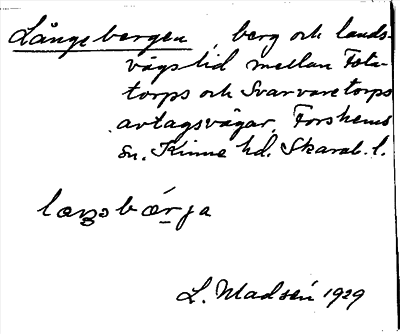 Långebergen, berg och lands-
vägslid mellan Fota-
torps och Svarvaretorps
avtagsvägar, Forshems
sn. Kinne hd. Skarab. l.
laŋsbærja
L. Madsén 1929